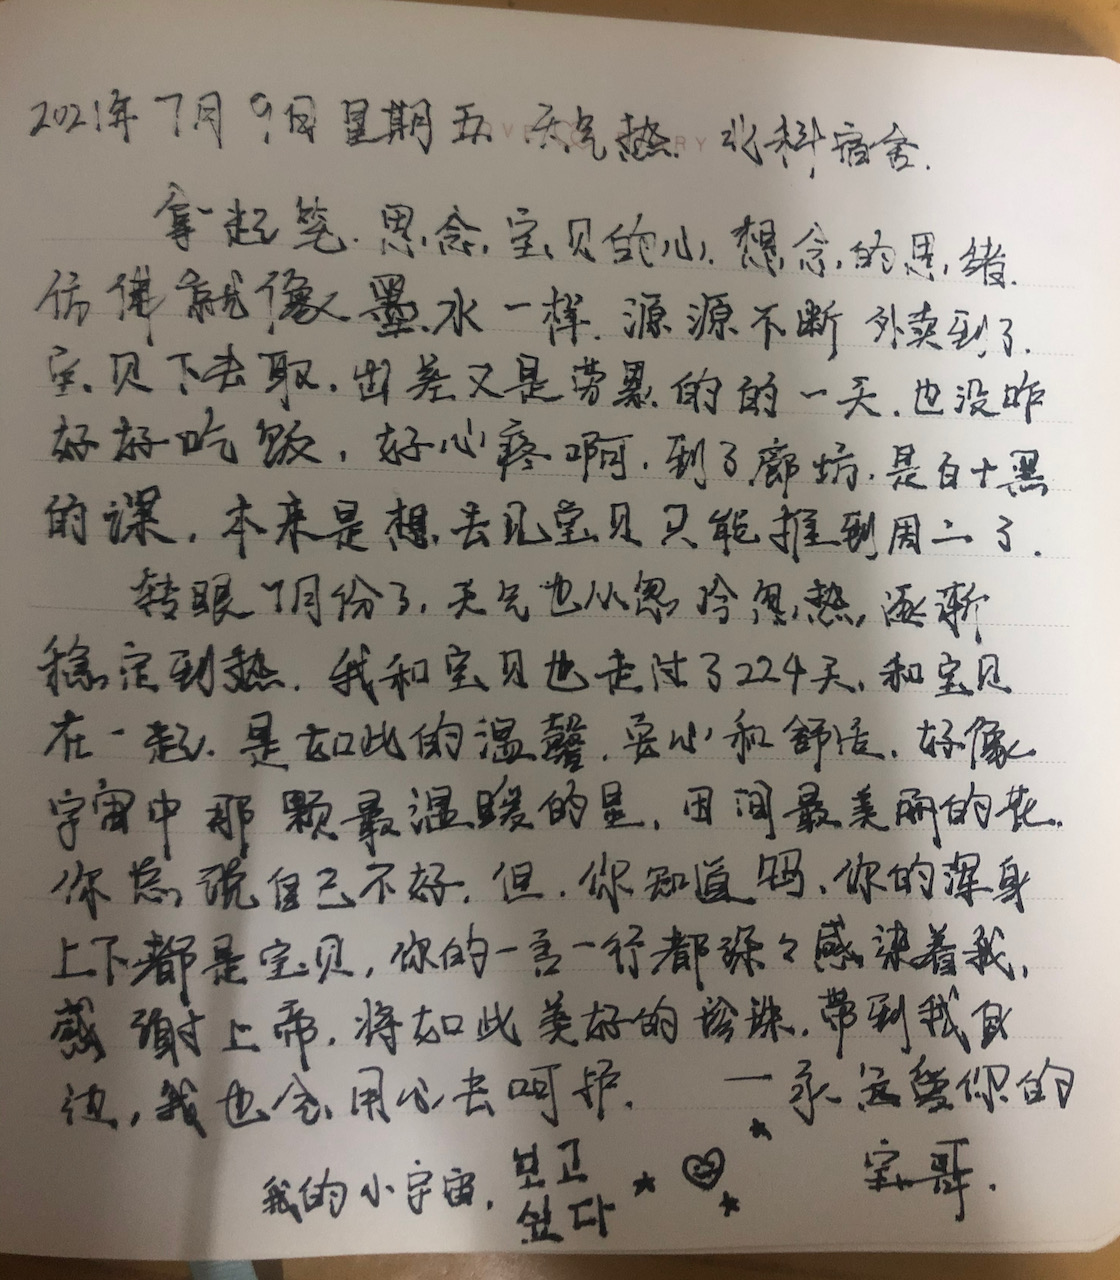 2021年7月9日星期五 天气热 北科宿舍.
拿起笔.思念宝贝的心.想念的思绪.
仿佛就像墨水一样.源源不断 外卖到了.
宝贝下去取.出差又是劳累的的一天.也没咋
好好吃饭,好心疼啊.到了廊坊.是白+黑
的课,本来是想去见宝贝只能推到周二了.
转眼7月份了,天气也从忽冷忽热,逐渐
稳定到热.我和宝贝也走过了224天,和宝贝
在一起.是如此的温馨.安心和舒适.好像
宇宙中那颗最温暖的星,田间最美丽的花.
你总说自己不好.但.你知道吗.你的浑身
上下都是宝贝,你的一言一行都深々感染着我,
感谢上帝.将如此美好的珍珠.带到我身
边,我也会用心去呵护. 一永远爱你的
宝哥.
我的小宇宙. 보고
싶다